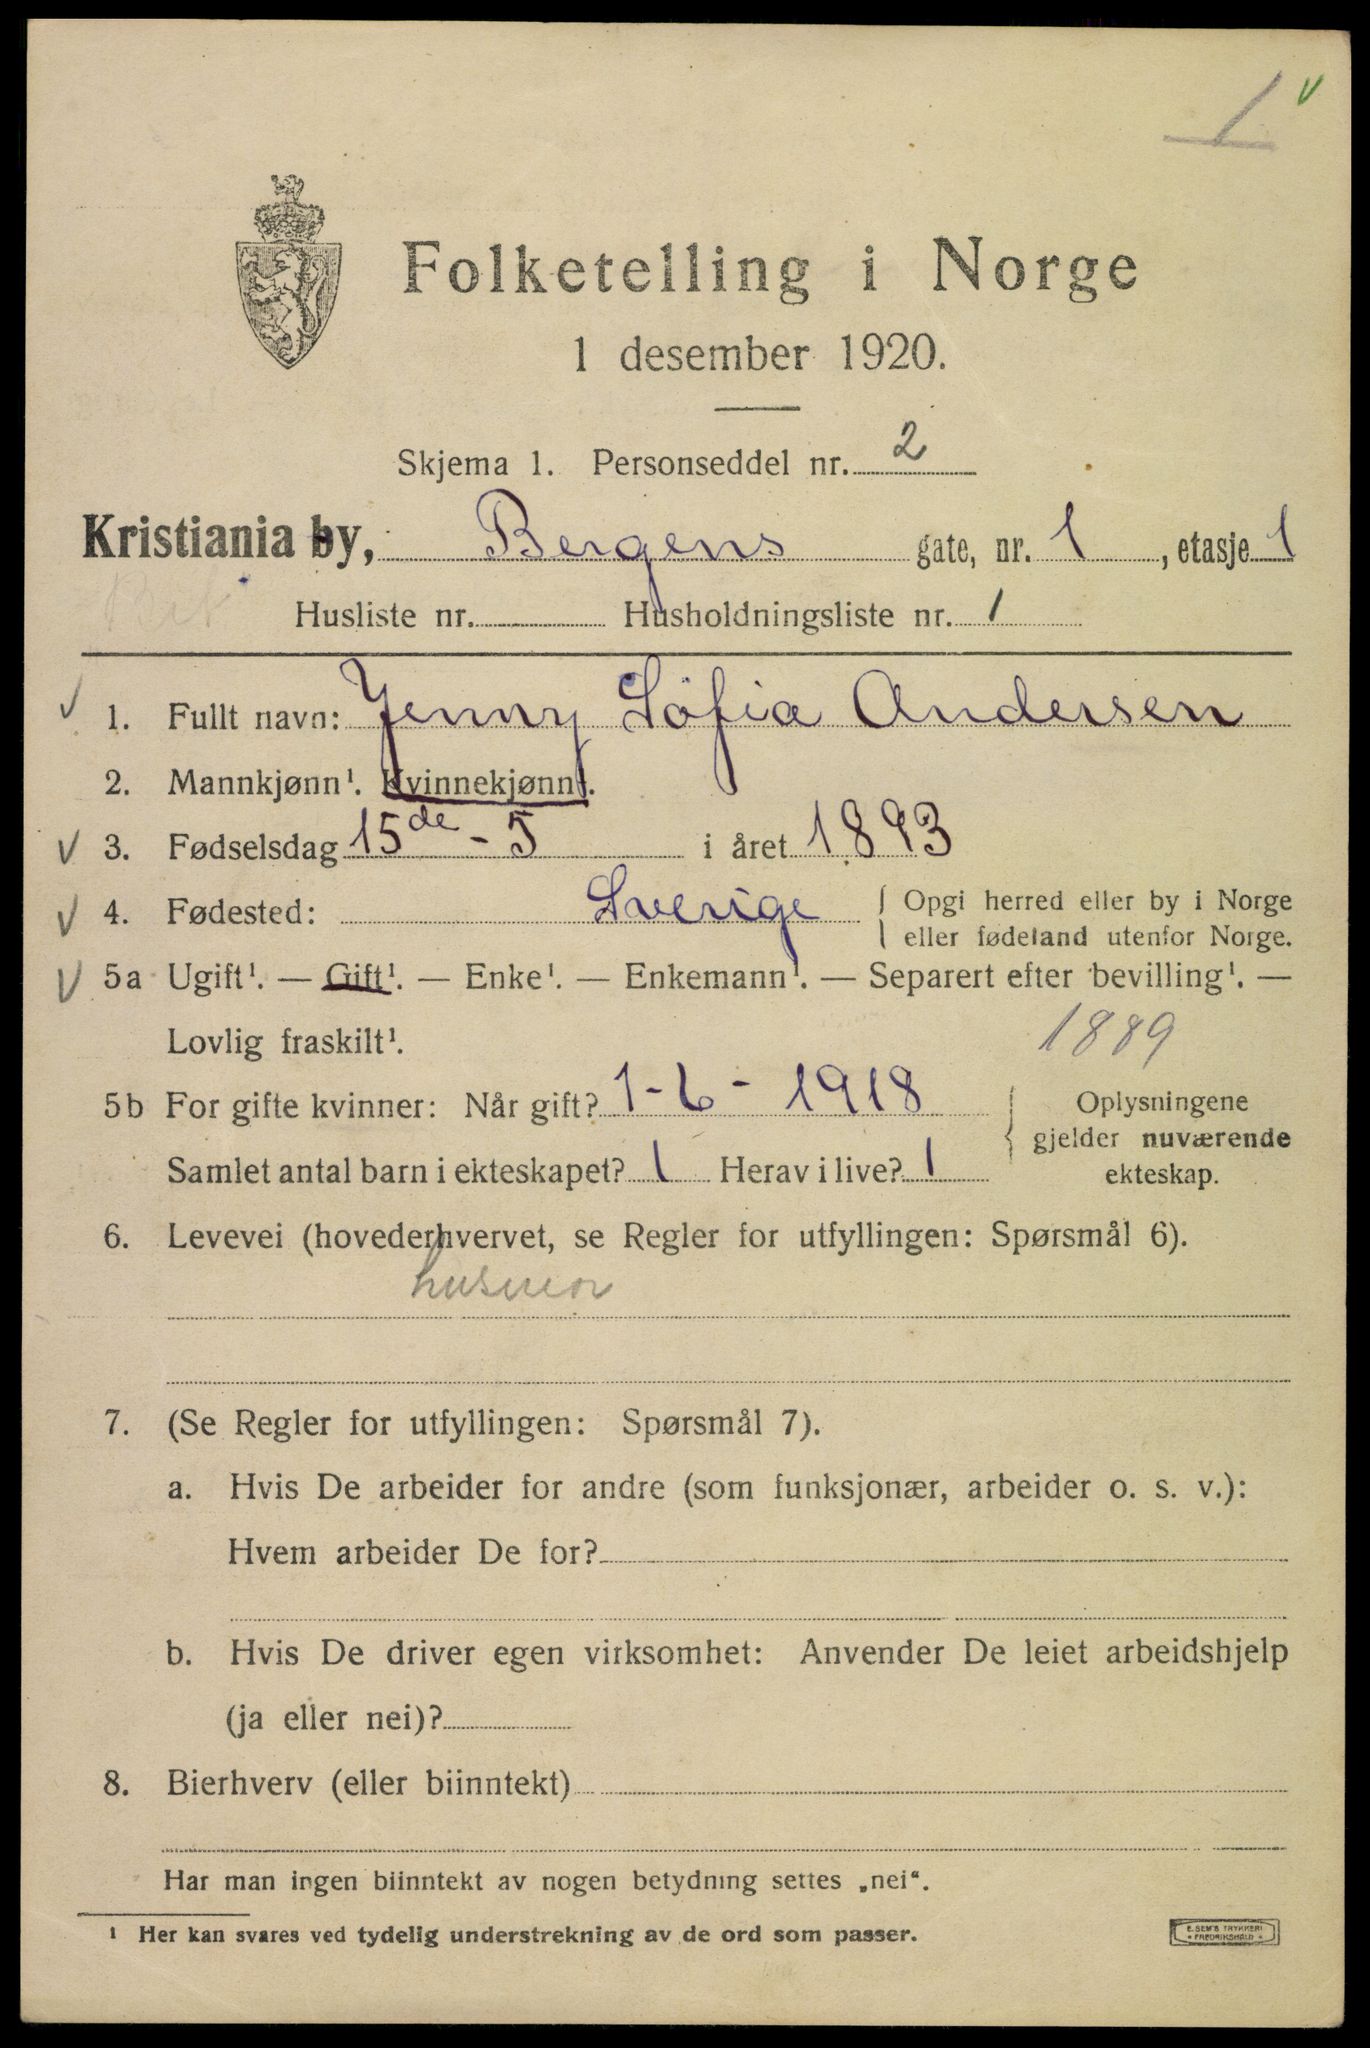 1 v
Folketelling i Norge
1 desember 1920.
Skjema 1. Personseddel nr. 2
Kristiania by, Bergens gate, nr. 1, etasje 1
Husliste nr. Husholdningsliste nr. 1
1. Fullt navn: Jenny Sofia Andersen
2. Mannkjønn¹. Kvinnekjønn¹.
3. Fødselsdag 15de - 5 i året 1893
4. Fødested: Sverige Opgi herred eller by i Norge
eller fødeland utenfor Norge.
5a Ugift¹. — Gift¹. — Enke¹. — Enkemann¹. — Separert efter bevilling¹. —
Lovlig fraskilt¹. 1889
5b For gifte kvinner: Når gift? 1-6-1918 Oplysningene
gjelder nuværende
Samlet antal barn i ekteskapet? 1 Herav i live? 1 ekteskap.
6. Levevei (hovederhvervet, se Regler for utfyllingen: Spørsmål 6).
husmor
7. (Se Regler for utfyllingen: Spørsmål 7).
a. Hvis De arbeider for andre (som funksjonær, arbeider o. s. v.):
Hvem arbeider De for?
b. Hvis De driver egen virksomhet: Anvender De leiet arbeidshjelp
(ja eller nei)?
8. Bierhverv (eller biinntekt)
Har man ingen biinntekt av nogen betydning settes „nei“.
¹ Her kan svares ved tydelig understrekning av de ord som passer.
E. SEM'S TRYKKERI
FREDRIKSHALD